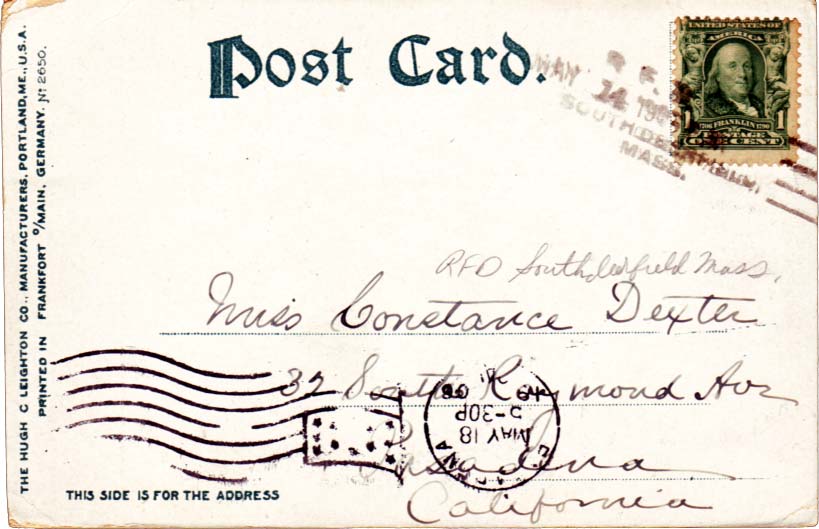 Post Card.
UNITED STATES OF
AMERICA
1706 FRANKLIN 1790
1 POSTAGE 1
ONE CENT
R. F. D.
MAY 14
SOUTH DEERFIELD,
MASS.
RFD Southdeerfield Mass.
Miss Constance Dexter
32 South Raymond Ave
Pasadena
California
MAY 18
2-30P
THIS SIDE IS FOR THE ADDRESS
THE HUGH C LEIGHTON CO., MANUFACTURERS, PORTLAND, ME., U.S.A.
PRINTED IN FRANKFORT O/MAIN, GERMANY. No 2650.